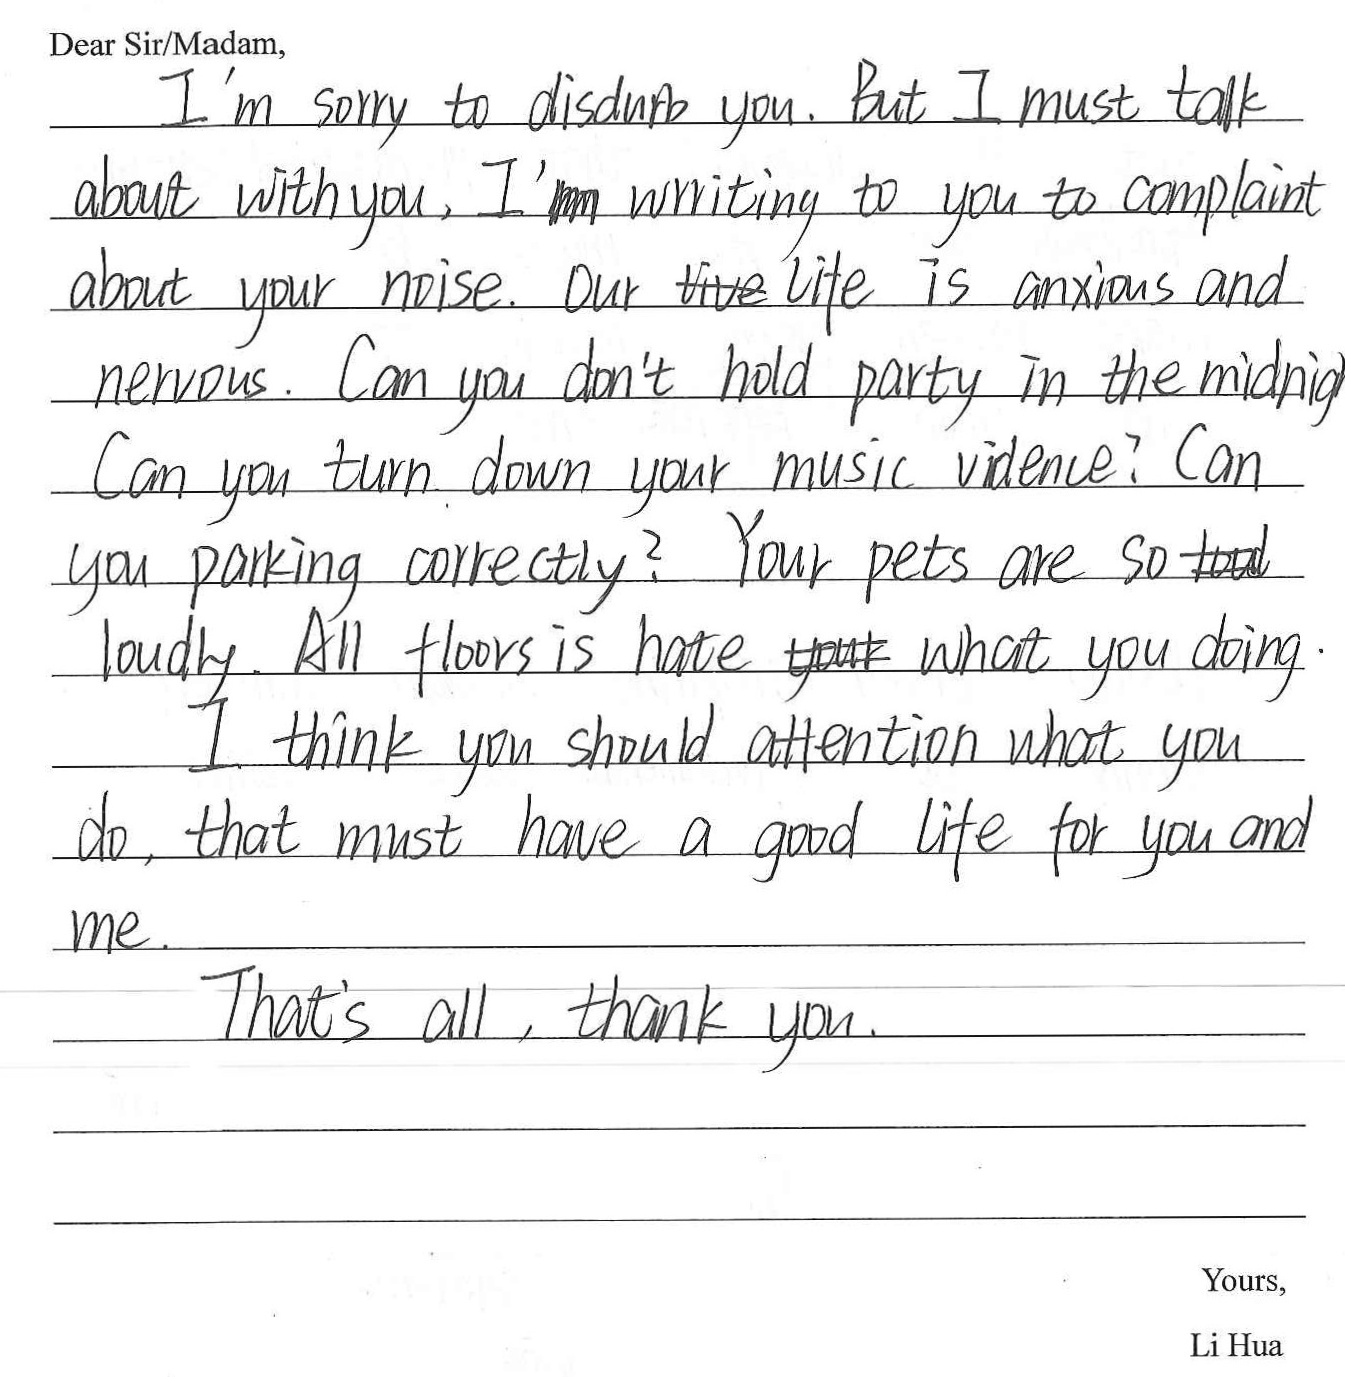 Dear Sir/Madam,
I'm sorry to disdurb you. But I must talk
about with you, I'm wrriting to you to complaint
about your noise. Our life is anxious and
nervous. Can you don't hold party in the midnigh
Can you turn down your music vidence? Can
you parking correctly? Your pets are so
loudly. All floors is hate what you doing.
I think you should attention what you
do, that must have a good life for you and
me.
That's all, thank you.
Yours,
Li Hua